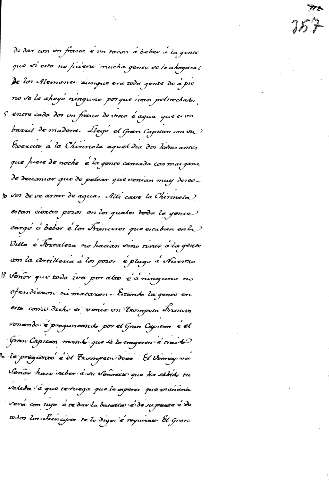 357
de dar con un frasco é un tacon á beber á la gente
que si esto no hiciera mucha gente se le ahogara:
De los Alemanes aunque era toda gente de á pie
no se le ahogó ninguno porque como
5 entre cada dos un frasco de vino é agua que eran
de madera. Llegó el Gran Capitan con su
Exercito á la Chirinola aquel dia dos horas antes
que fuese de noche é la gente cansada con mas gana
de descansar que de pelear que venian muy
de agua. Alli cave la Chirinola
estan ciertos pozos en los quales toda la gente
cargó á beber é los Franceses que estaban en la
Villa é Fortaleza no hacian sino tirar á la gente
con la artilleria á los pozos é plugo á Nuestro
Señor que toda iva por alto é á ninguno no
ofendieron ni mataron. Estando la gente en
esto como dicho es vino un Trompeta Frances
sonando é preguntando por el Gran Capitan é el
Gran Capitan mandó que se lo traxesen é traido
le preguntó é el Trompeta dixo. El Visorrey mi
Señor hace saber á su Señoria que ha sabido su
salida é que le ruega que le espere que mañana
será con suyo á le dar la batalla é de su parte é de
todos los Principes te lo digo é requiero. El Gran